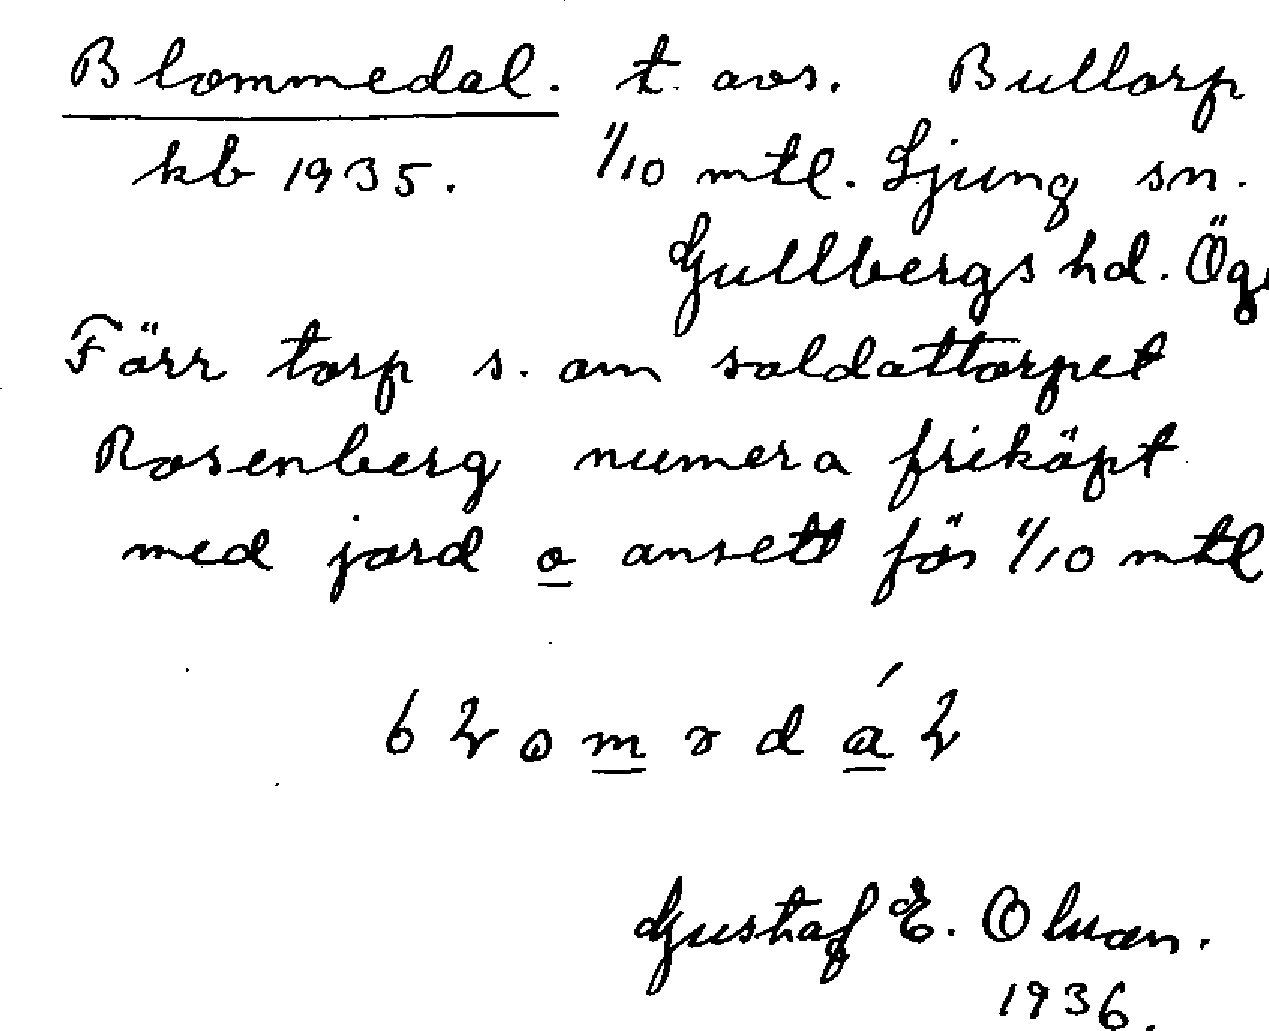 Blommedal. t. avs. Bullorp
kb 1935. 1/10 mtl. Ljung sn.
Gullbergs hd. Ög.
Förr torp s. om soldattorpet
Rosenberg numera friköpt
med jord o ansett för 1/10 mtl
Gustaf E. Olson.
1936.